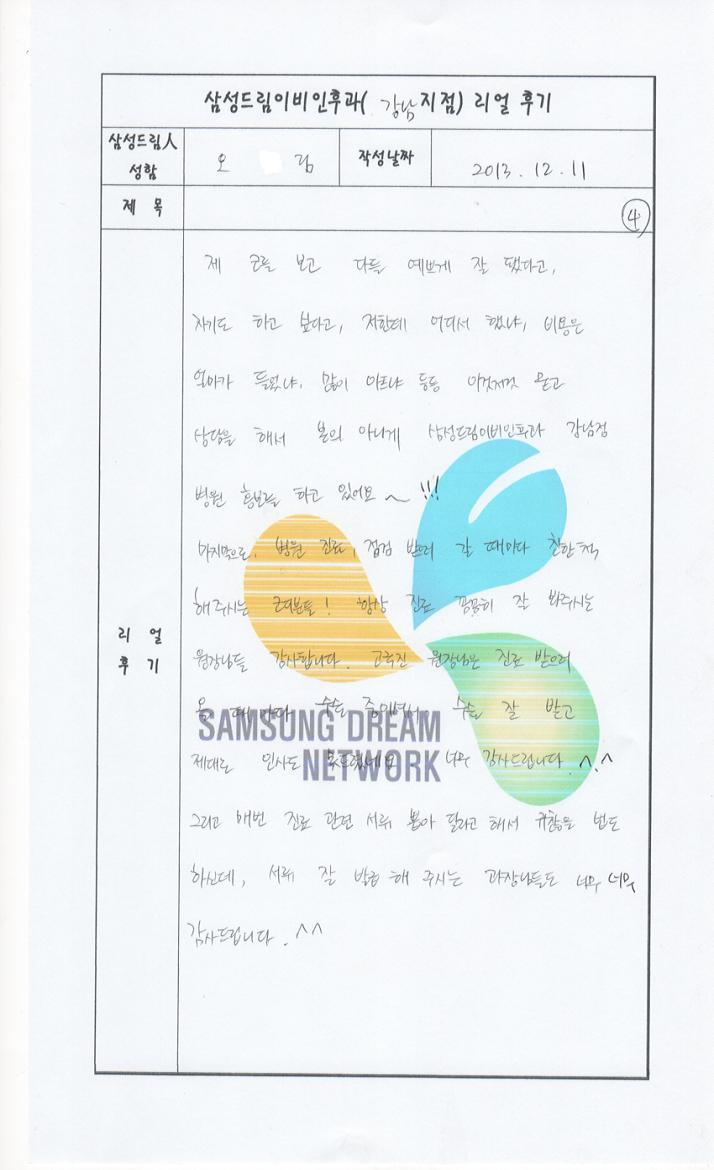 삼성드림이비인후과( 강남 지점) 리얼 후기
삼성드림人 성함
오 림
작성날짜
2013. 12. 11
제 목
④
리 얼
후 기
제 코를 보고 다들 예쁘게 잘 됐다고,
자기도 하고 싶다고, 저한테 어디서 했냐, 비용은
얼마가 들었냐, 많이 아프냐 등등 이것저것 묻고
상담을 해서 본의 아니게 삼성드림이비인후과 강남점
병원 홍보를 하고 있어요 ~ !!!
마지막으로, 병원 진료, 점검 받으러 갈 때마다 친한척
해주시는 간호분들! 항상 진료 꼼꼼히 잘 봐주시는
원장님들 감사합니다. 원장님은 진료 받으러
올 때마다 수술 중이셔서 수술 잘 받고
제대로 인사도 못드렸네요 너무 감사드립니다 ^.^
SAMSUNG DREAM
NETWORK
그리고 매번 진료 관련 서류 뽑아 달라고 해서 귀찮을 법도
하신데, 서류 잘 발급 해 주시는 과장님들도 너무 너무
감사드립니다. ^^